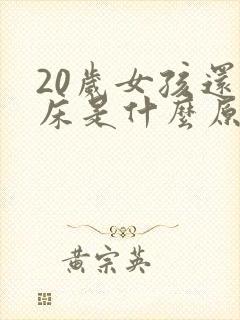 20歲女孩還
床是什麼原
黃宗英